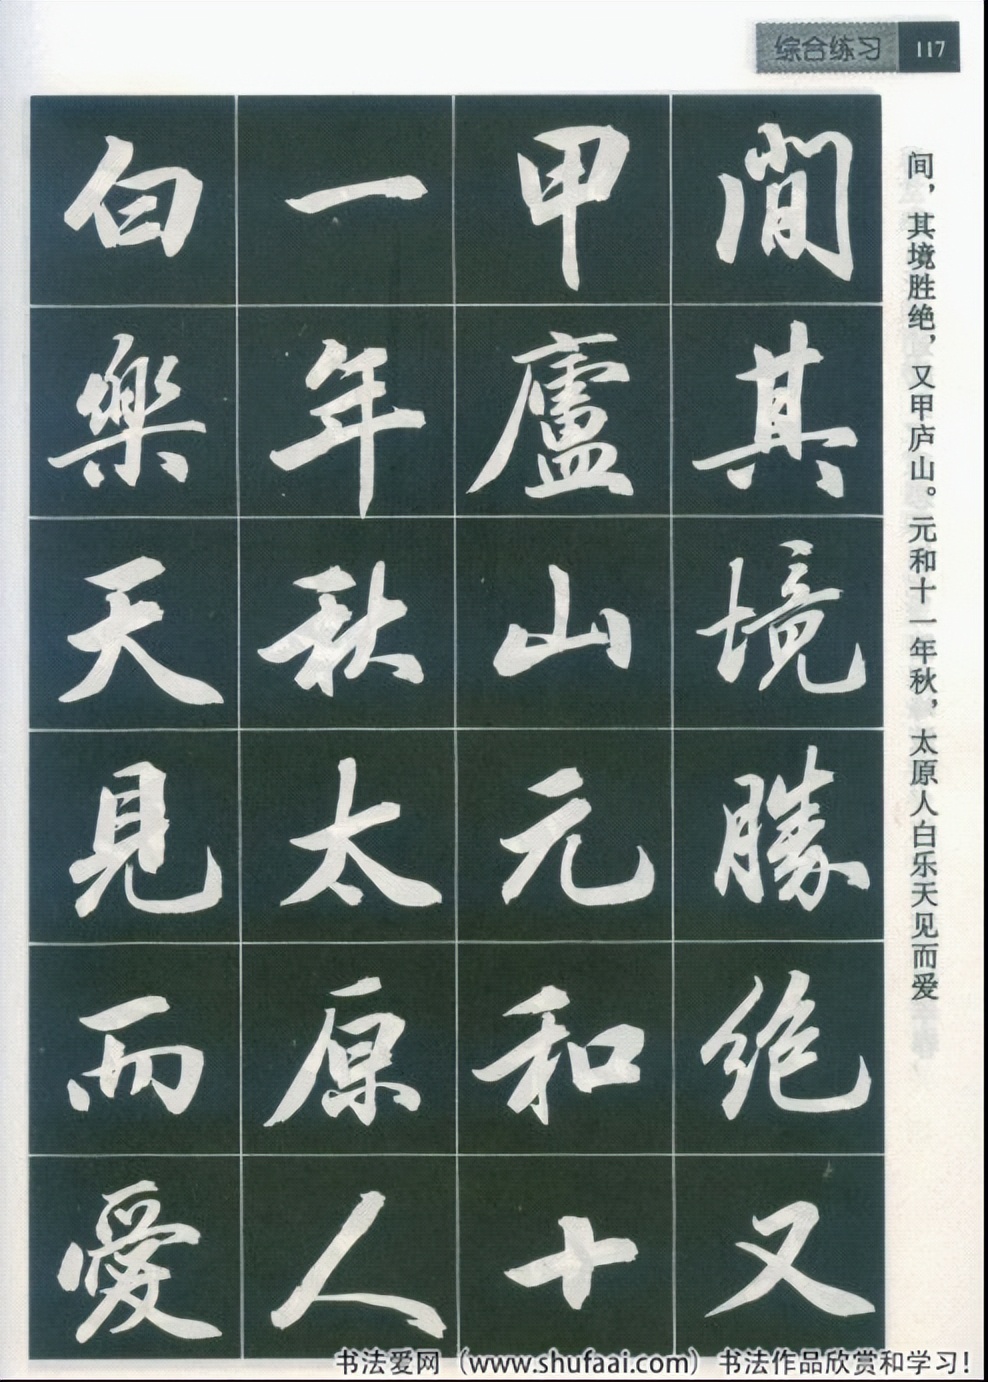 综合练习 117
间，其境胜绝，又甲庐山。元和十一年秋，太原人白乐天见而爱
間其境勝絶又
甲廬山元和十
一年秋太原人
白樂天見而愛
书法爱网（www.shufaai.com）书法作品欣赏和学习！